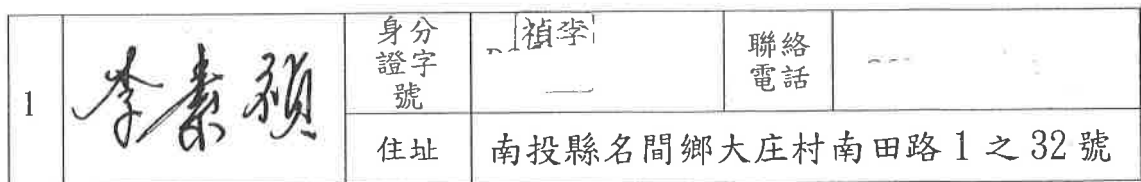 1
李素禎
身分證字號
禎李
聯絡電話
住址
南投縣名間鄉大庄村南田路1之32號